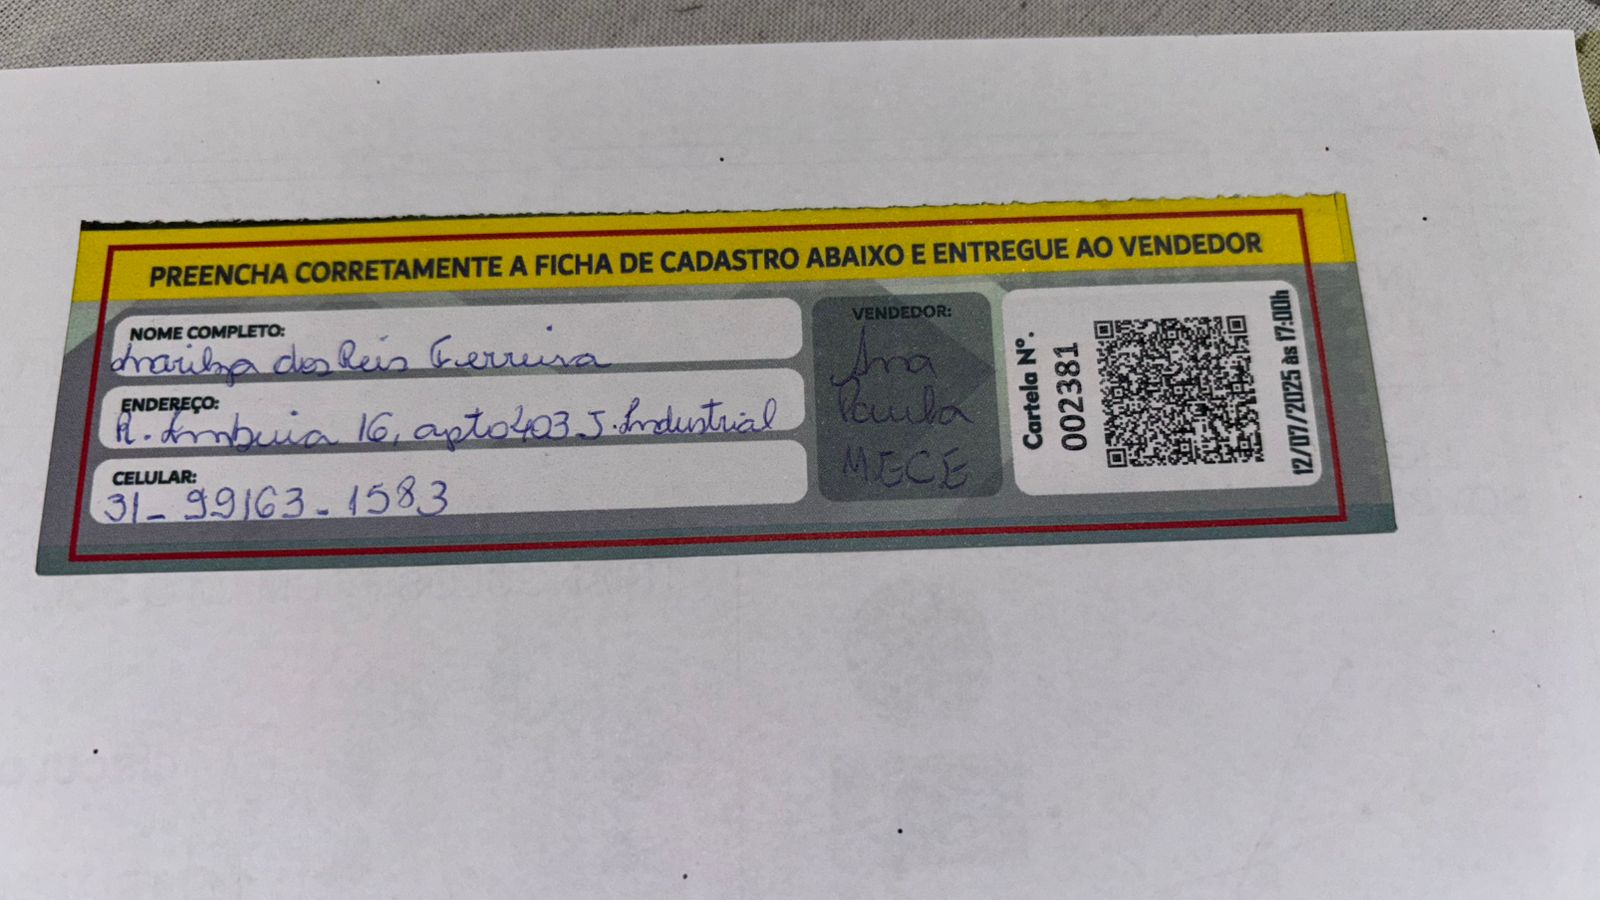 PREENCHA CORRETAMENTE A FICHA DE CADASTRO ABAIXO E ENTREGUE AO VENDEDOR
NOME COMPLETO:
Marilza dos Reis Ferreira
ENDEREÇO:
R. Imbuia 16, apto 403 J. Industrial
CELULAR:
31-99163-1583
VENDEDOR:
Ana
Paula
MECE
Cartela Nº.
002381
12/07/2025 às 17:00h